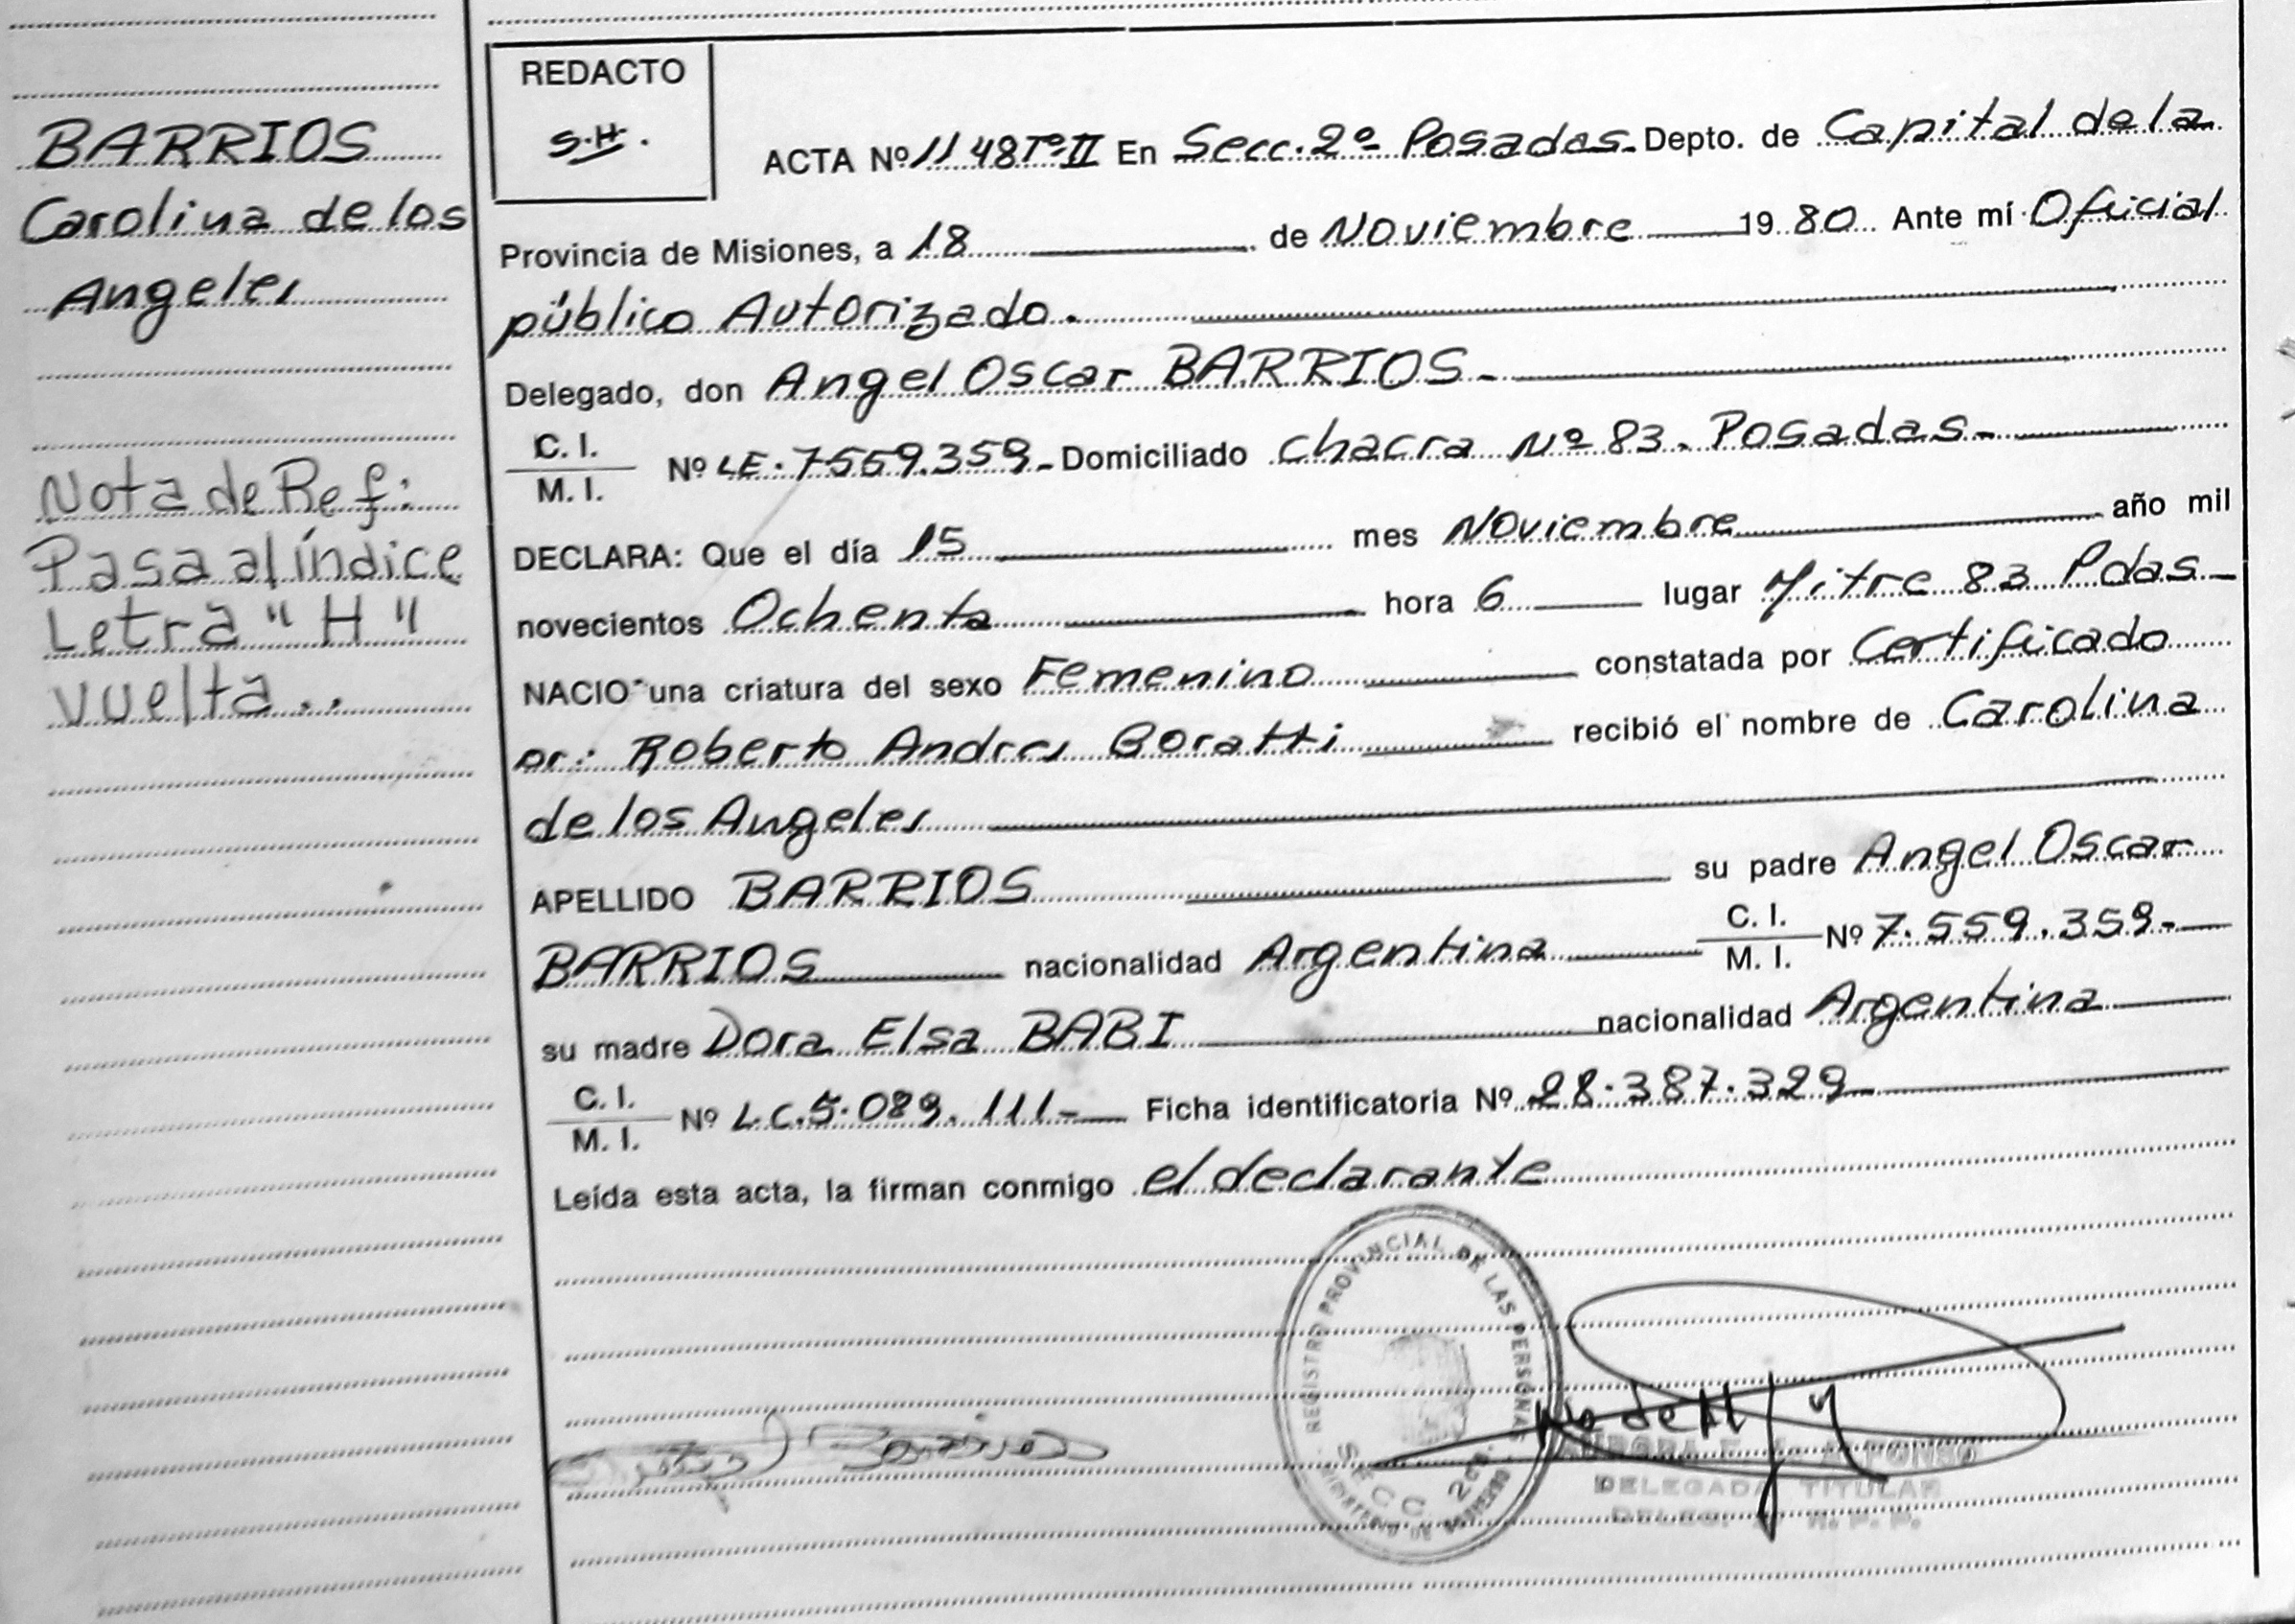 BARRIOS
Carolina de los
Angeles
Nota de Ref:
Pasa al índice
Letra "H"
vuelta..
REDACTO
S.H.
ACTA Nº 1148 Tº II En Secc. 2º Posadas. Depto. de Capital de la
Provincia de Misiones, a 18 de Noviembre 1980 Ante mí Oficial
público Autorizado.
Delegado, don Angel Oscar BARRIOS-
C. I.
M. I. Nº LE. 7559.359- Domiciliado Chacra Nº 83. Posadas-
DECLARA: Que el día 15 mes Noviembre año mil
novecientos Ochenta hora 6 lugar Mitre 83 Pdas-
NACIO una criatura del sexo Femenino constatada por Certificado
Dr: Roberto Andres Boratti recibió el nombre de Carolina
de los Angeles
APELLIDO BARRIOS su padre Angel Oscar
BARRIOS nacionalidad Argentina C. I.
M. I. Nº 7.559.359-
su madre Dora Elsa BABI nacionalidad Argentina
C. I.
M. I. Nº L.C. 5.089.111- Ficha identificatoria Nº 28.387.329-
Leída esta acta, la firman conmigo el declarante
REGISTRO PROVINCIAL DE LAS PERSONAS
SECC. 2da.
MINISTERIO DE GOBIERNO
Barrios
ALFONSO
DELEGADA TITULAR
R. P. P.